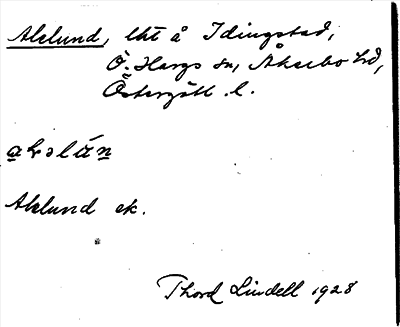 Aklund, lht å Idingstad,
Ö. Hargs sn, Åkerbo hd,
Östergötl. l.
akəlán
Aklund ek.
Thord Lindell 1928